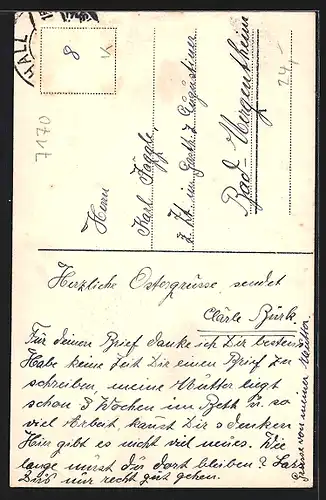 HALL
8
K
7170
24,-
Herrn
Karl Köggle,
z. Zt. im Gasth. z. Augustiner
Bad-Mergentheim
Herzliche Ostergrüsse, sendet
Clärle Bürk
Für deinen Brief danke ich Dir bestens
Habe keine Zeit Dir einen Brief zu
schreiben, meine Mutter liegt
schon 3 Wochen im Bett u. so
viel Arbeit, kanst Dir's denken
Hier gibt es nicht viel neues. Wie
lange müsst du dort bleiben? Lass
Dir's nur recht gut gehen.
Grüsse von meiner Mutter.